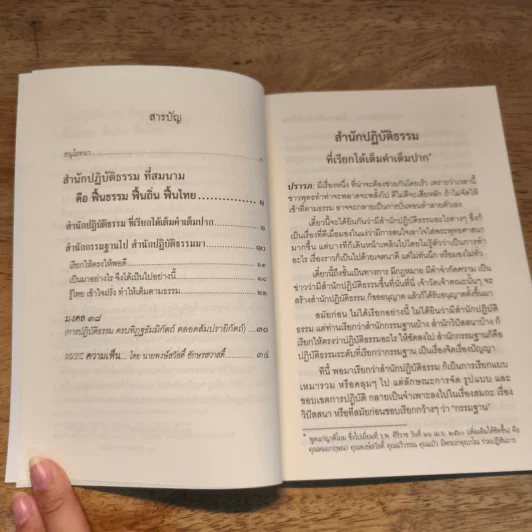 สารบัญ
อนุโมทนา
สำนักปฏิบัติธรรม ที่สมนาม
คือ ฟื้นธรรม ฟื้นถิ่น ฟื้นไทย ๑
สำนักปฏิบัติธรรม ที่เรียกได้เต็มคำเต็มปาก ๑
สำนักกรรมฐานไป สำนักปฏิบัติธรรมมา ๑๐
เรียกให้ตรงให้พอดี ๑๔
เป็นมาอย่างไร จึงได้เป็นไปอย่างนี้ ๑๘
รู้ไทย เข้าใจฝรั่ง ทำให้เต็มตามธรรม ๒๒
มงคล ๓๘
(การปฏิบัติธรรม ครบทิฏฐธัมมิกัตถ์ ตลอดสัมปรายิกัตถ์) ๓๐
ผนวก: ความเห็น... โดย นายพงษ์สวัสดิ์ อักษรสวาสดิ์ ๓๔
สำนักปฏิบัติธรรม
ที่เรียกได้เต็มคำเต็มปาก*
ปรารภ: มีเรื่องหนึ่ง ที่น่าจะต้องช่วยกันโดยเร็ว เพราะว่าเวลานี้
ชาวพุทธทำท่าจะพลาดจะพลั้งไป ดีไม่ดีจะเสียหลัก ถ้าไม่จัดให้
เข้าที่ตามธรรม อาจจะกลายเป็นการบั่นทอนทำลายตัวเอง
เดี๋ยวนี้จะได้ยินกันว่ามีสำนักปฏิบัติธรรมอะไรต่างๆ ซึ่งก็
เป็นเรื่องที่ดีเมื่อมองในแง่ว่ามีการสนใจเอาใจใส่พระพุทธศาสนา
มากขึ้น แต่บางทีก็เดินหน้าเพลินไปโดยไม่รู้ตัวว่าเป็นการทำ
อะไร เรื่องราวก็เป็นไปด้วยเจตนาดี แต่ไม่ทันนึก หรือมองไม่ทั่ว
เดี๋ยวนี้ถึงขั้นเป็นทางการ มีกฎหมาย มีคำจำกัดความ เป็น
ข่าวว่ามีสำนักปฏิบัติธรรมขึ้นที่นั่นที่นี่ เจ้าวัดเจ้าคณะนั้นๆ จะ
สร้างสำนักปฏิบัติธรรม ก็ขออนุญาต แล้วก็ได้รับอนุญาตตั้งขึ้นมา
สมัยก่อน ไม่ได้เรียกอย่างนี้ ไม่ได้ยินว่ามีสำนักปฏิบัติ
ธรรม แต่ท่านเรียกว่าสำนักกรรมฐานบ้าง สำนักวิปัสสนาบ้าง ก็
เรียกให้ตรงว่าปฏิบัติธรรมอะไร ให้ชัดลงไป สำนักกรรมฐานก็คือ
ปฏิบัติธรรมระดับที่เรียกว่ากรรมฐาน เป็นเรื่องจิตเรื่องปัญญา
ทีนี้ พอมาเรียกว่าสำนักปฏิบัติธรรม ก็เป็นการเรียกแบบ
เหมารวม หรือคลุมๆ ไป แต่ลักษณะการจัด รูปแบบ และ
ขอบเขตการปฏิบัติ กลายเป็นจำเพาะลงไปในเรื่องสมถะ เรื่อง
วิปัสสนา หรือที่สมัยก่อนชอบเรียกกว้างๆ ว่า "กรรมฐาน"